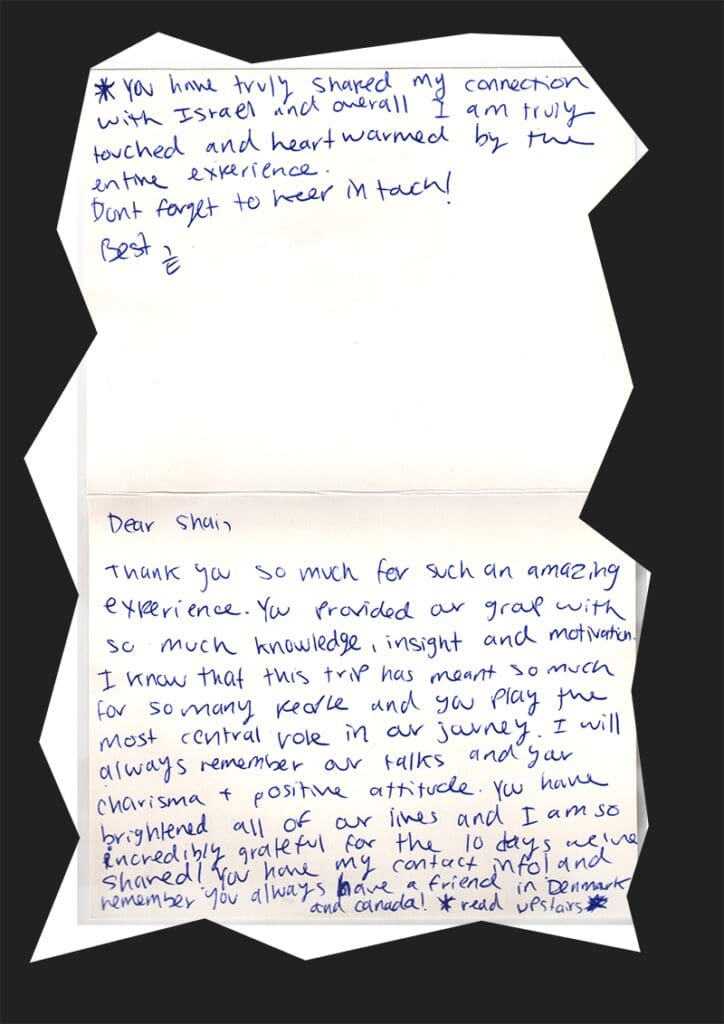 * You have truly shared my connection
with Israel and overall I am truly
touched and heartwarmed by the
entire experience.
Dont forget to keep in touch!
Best,
Dear Shai,
Thank you so much for such an amazing
experience. You provided our group with
so much knowledge, insight and motivation.
I know that this trip has meant so much
for so many people and you play the
most central role in our journey. I will
always remember our talks and your
charisma + positive attitude. You have
brightened all of our lives and I am so
incredibly grateful for the 10 days we've
shared! You have my contact info! and
remember you always have a friend in Denmark
and canada! * read upstairs *